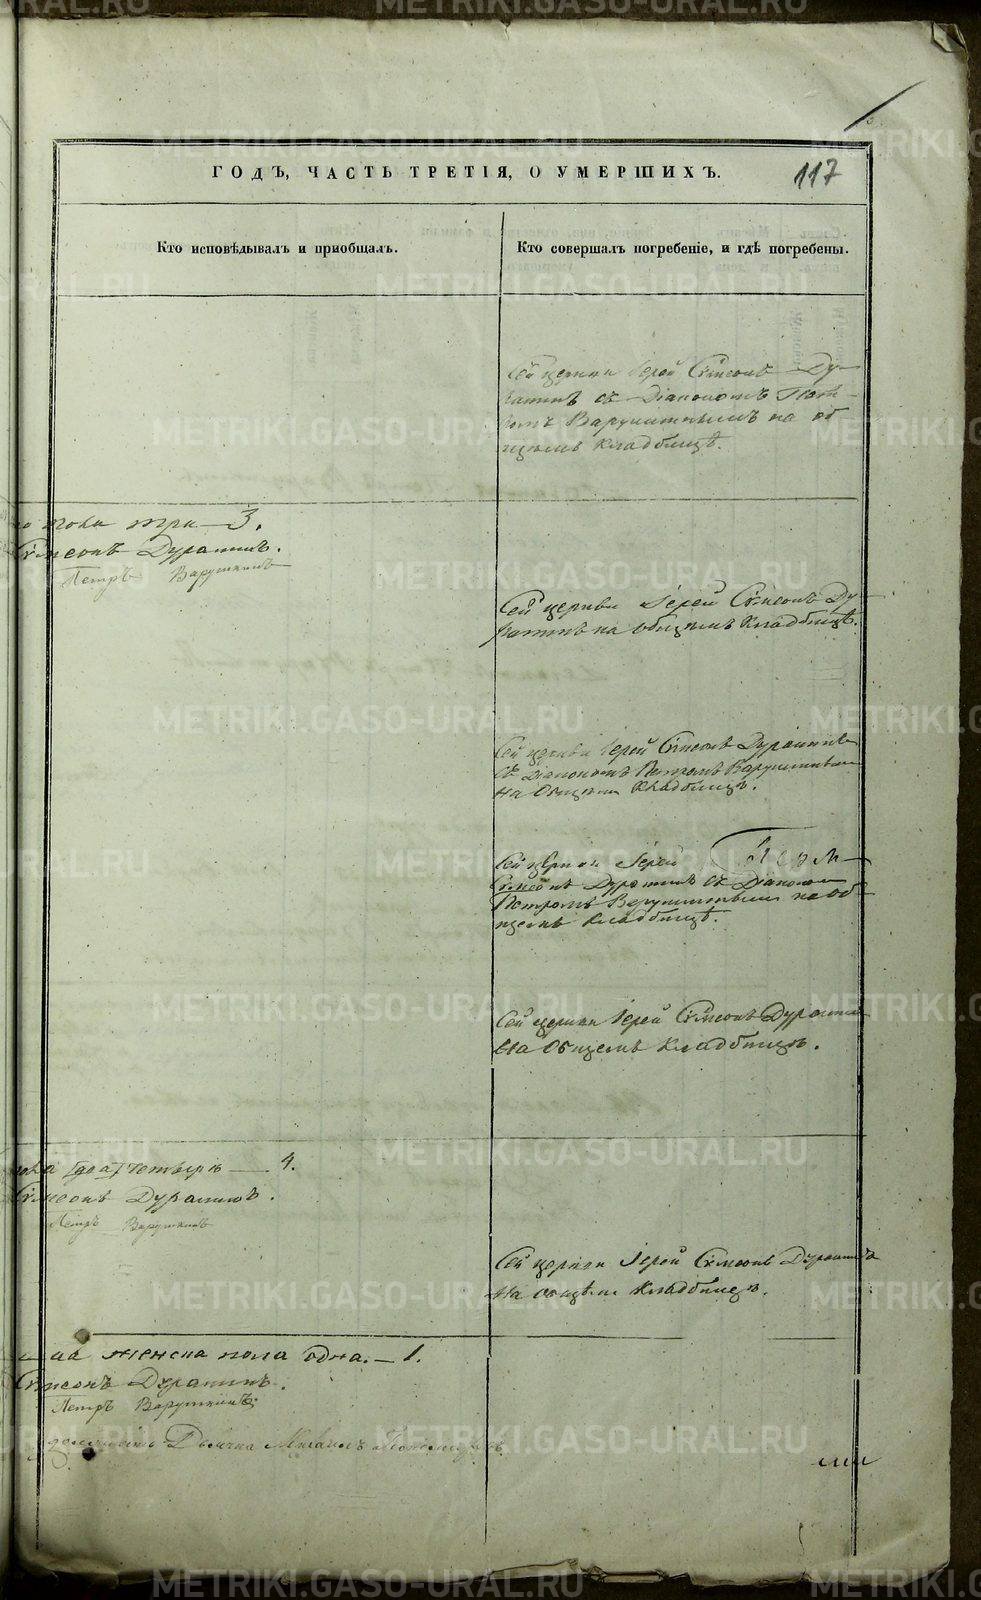 ГОДЪ, ЧАСТЬ ТРЕТІЯ, О УМЕРШИХЪ.
117
Кто исповѣдывалъ и пріобщалъ.
Кто совершалъ погребеніе, и гдѣ погребены.
Сей церкви Іерей Сѵмеонъ Ду-
ратинъ съ Діакономъ Пет-
ромъ Варушкинымъ на об
щемъ кладбищѣ.
пола три — 3.
Сѵмеонъ Дуратинъ.
Петръ Варушкинъ
Сей церкви Іерей Сѵмеонъ Ду-
ратинъ на общемъ кладбищѣ.
Сей церкви Іерей Сѵмеонъ Дуратинъ
съ Діакономъ Петромъ Варушкинымъ
на общемъ кладбищѣ.
Сей церкви Іерей
Сѵмеонъ Дуратинъ съ Діакономъ
Петромъ Варушкинымъ на об
щемъ кладбищѣ.
Сей церкви Іерей Сѵмеонъ Дуратинъ
на общемъ кладбищѣ.
пола [два] четыре — 4.
Сѵмеонъ Дуратинъ.
Петръ Варушкинъ
Сей церкви Іерей Сѵмеонъ Дуратинъ
на общемъ кладбищѣ.
женска пола одна. — 1.
Сѵмеонъ Дуратинъ.
Петръ Варушкинъ
должность Дьячка Михаилъ
METRIKI.GASO-URAL.RU